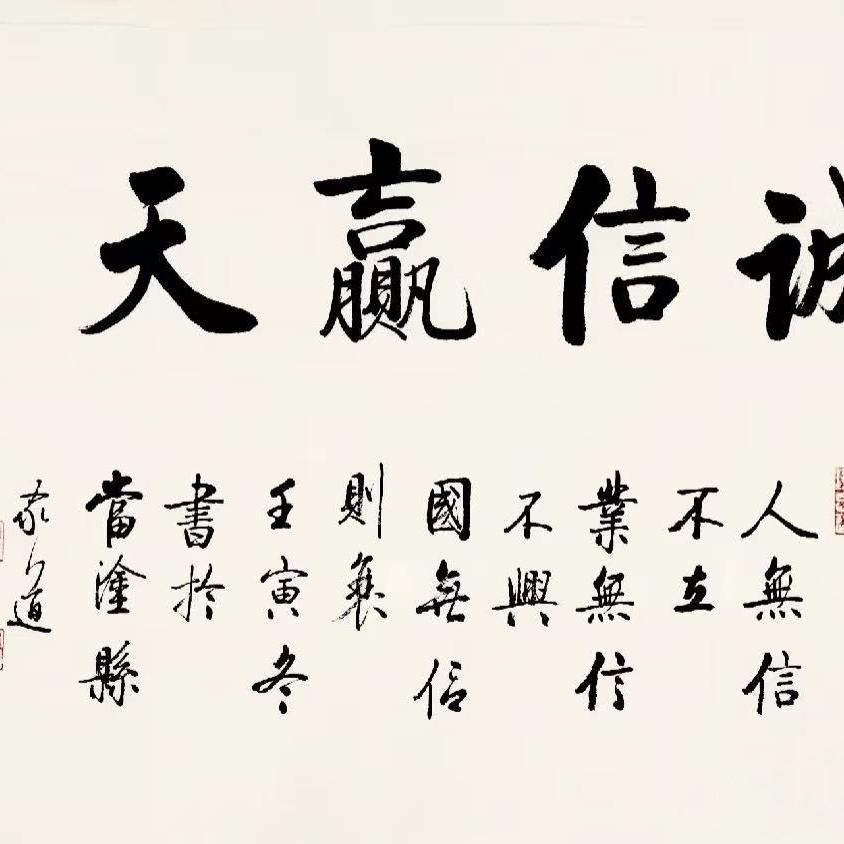 誠信贏天
人無信
不立
業無信
不興
國無信
則衰
壬寅冬
書於
當塗縣
道